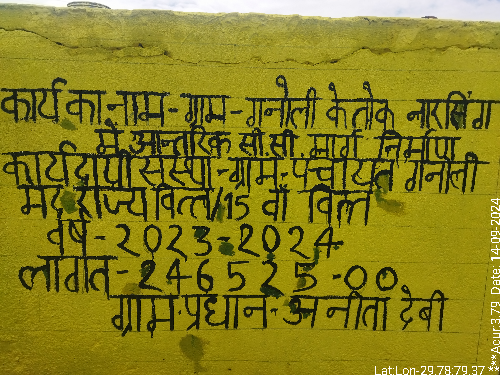 कार्य का नाम-ग्राम-गनोली के तोक नारसिंग
में आन्तरिक सी.सी मार्ग निर्माण
कार्यदायी संस्था-ग्राम-पंचायत गनोली
मद-राज्य वित्त/15 वाँ वित्त
वर्ष-2023-2024
लागत-246525-00
ग्राम-प्रधान-अनीता देबी
Lat:Lon-29.79:79.37
***Acur:3.79 Date: 14-09-2024